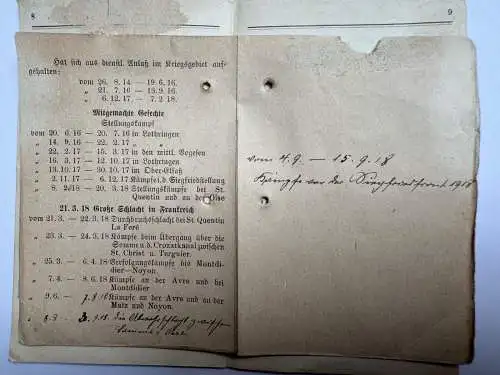 8
9
Hat sich aus dienstl. Anlaß im Kriegsgebiet auf-
gehalten:
vom 26. 8.14 — 19.6.16.
„ 21. 7.16 — 13.9.16.
„ 6.12.17 — 7.2 18.
Mitgemachte Gefechte
Stellungskampf
vom 20. 6.16 — 20. 7.16 in Lothringen
„ 14. 9.16 — 22. 2.17 „ „
„ 22. 2.17 — 15. 3.17 in den mittl. Vogesen
„ 16. 3.17 — 12. 10.17 in Lothringen
„ 13.10.17 — 30. 10.17 im Ober-Elsaß
„ 2.11.17 — 6. 12.17 Kämpfe i.d. Siegfriedstellung
„ 8. 2.18 — 20. 3.18 Stellungskämpfe bei St.
Quentin und an der Oise
21. 3. 18 Große Schlacht in Frankreich
vom 21. 3. — 22. 3.18 Durchbruchschlacht bei St Quentin
La Feré
„ 23. 3. — 24. 3.18 Kämpfe beim Übergang über die
Somme u. d. Crozatkanal zwischen
St. Christ u. Tergnier.
„ 25. 3. — 6.4.18 Verfolgungskämpfe bis Montdi-
dier—Noyon.
„ 7.4. — 8.6.18 Kämpfe an der Avre und bei
Montdidier
„ 9.6. — 7.8.18 Kämpfe an der Avre und an der
Matz und Noyon.
„ 8.8 — 3.9.18. die Abwehrschlacht zwischen
Somme u. Oise.
vom 4.9. — 15.9.18
Kämpfe vor der Siegfriedfront 1918